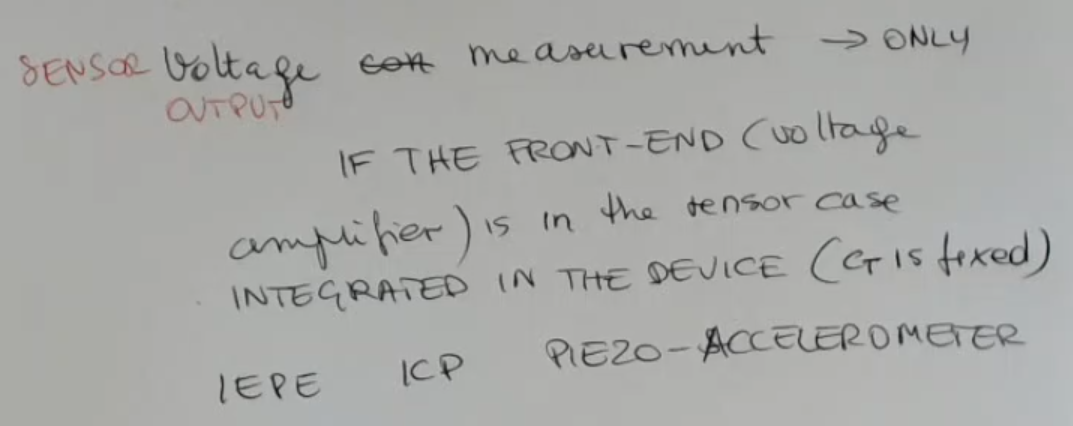 SENSOR Voltage con measurement → ONLY
OUTPUT
IF THE FRONT-END (voltage
amplifier) is in the sensor case
INTEGRATED IN THE DEVICE (CT is fixed)
IEPE ICP PIEZO-ACCELEROMETER